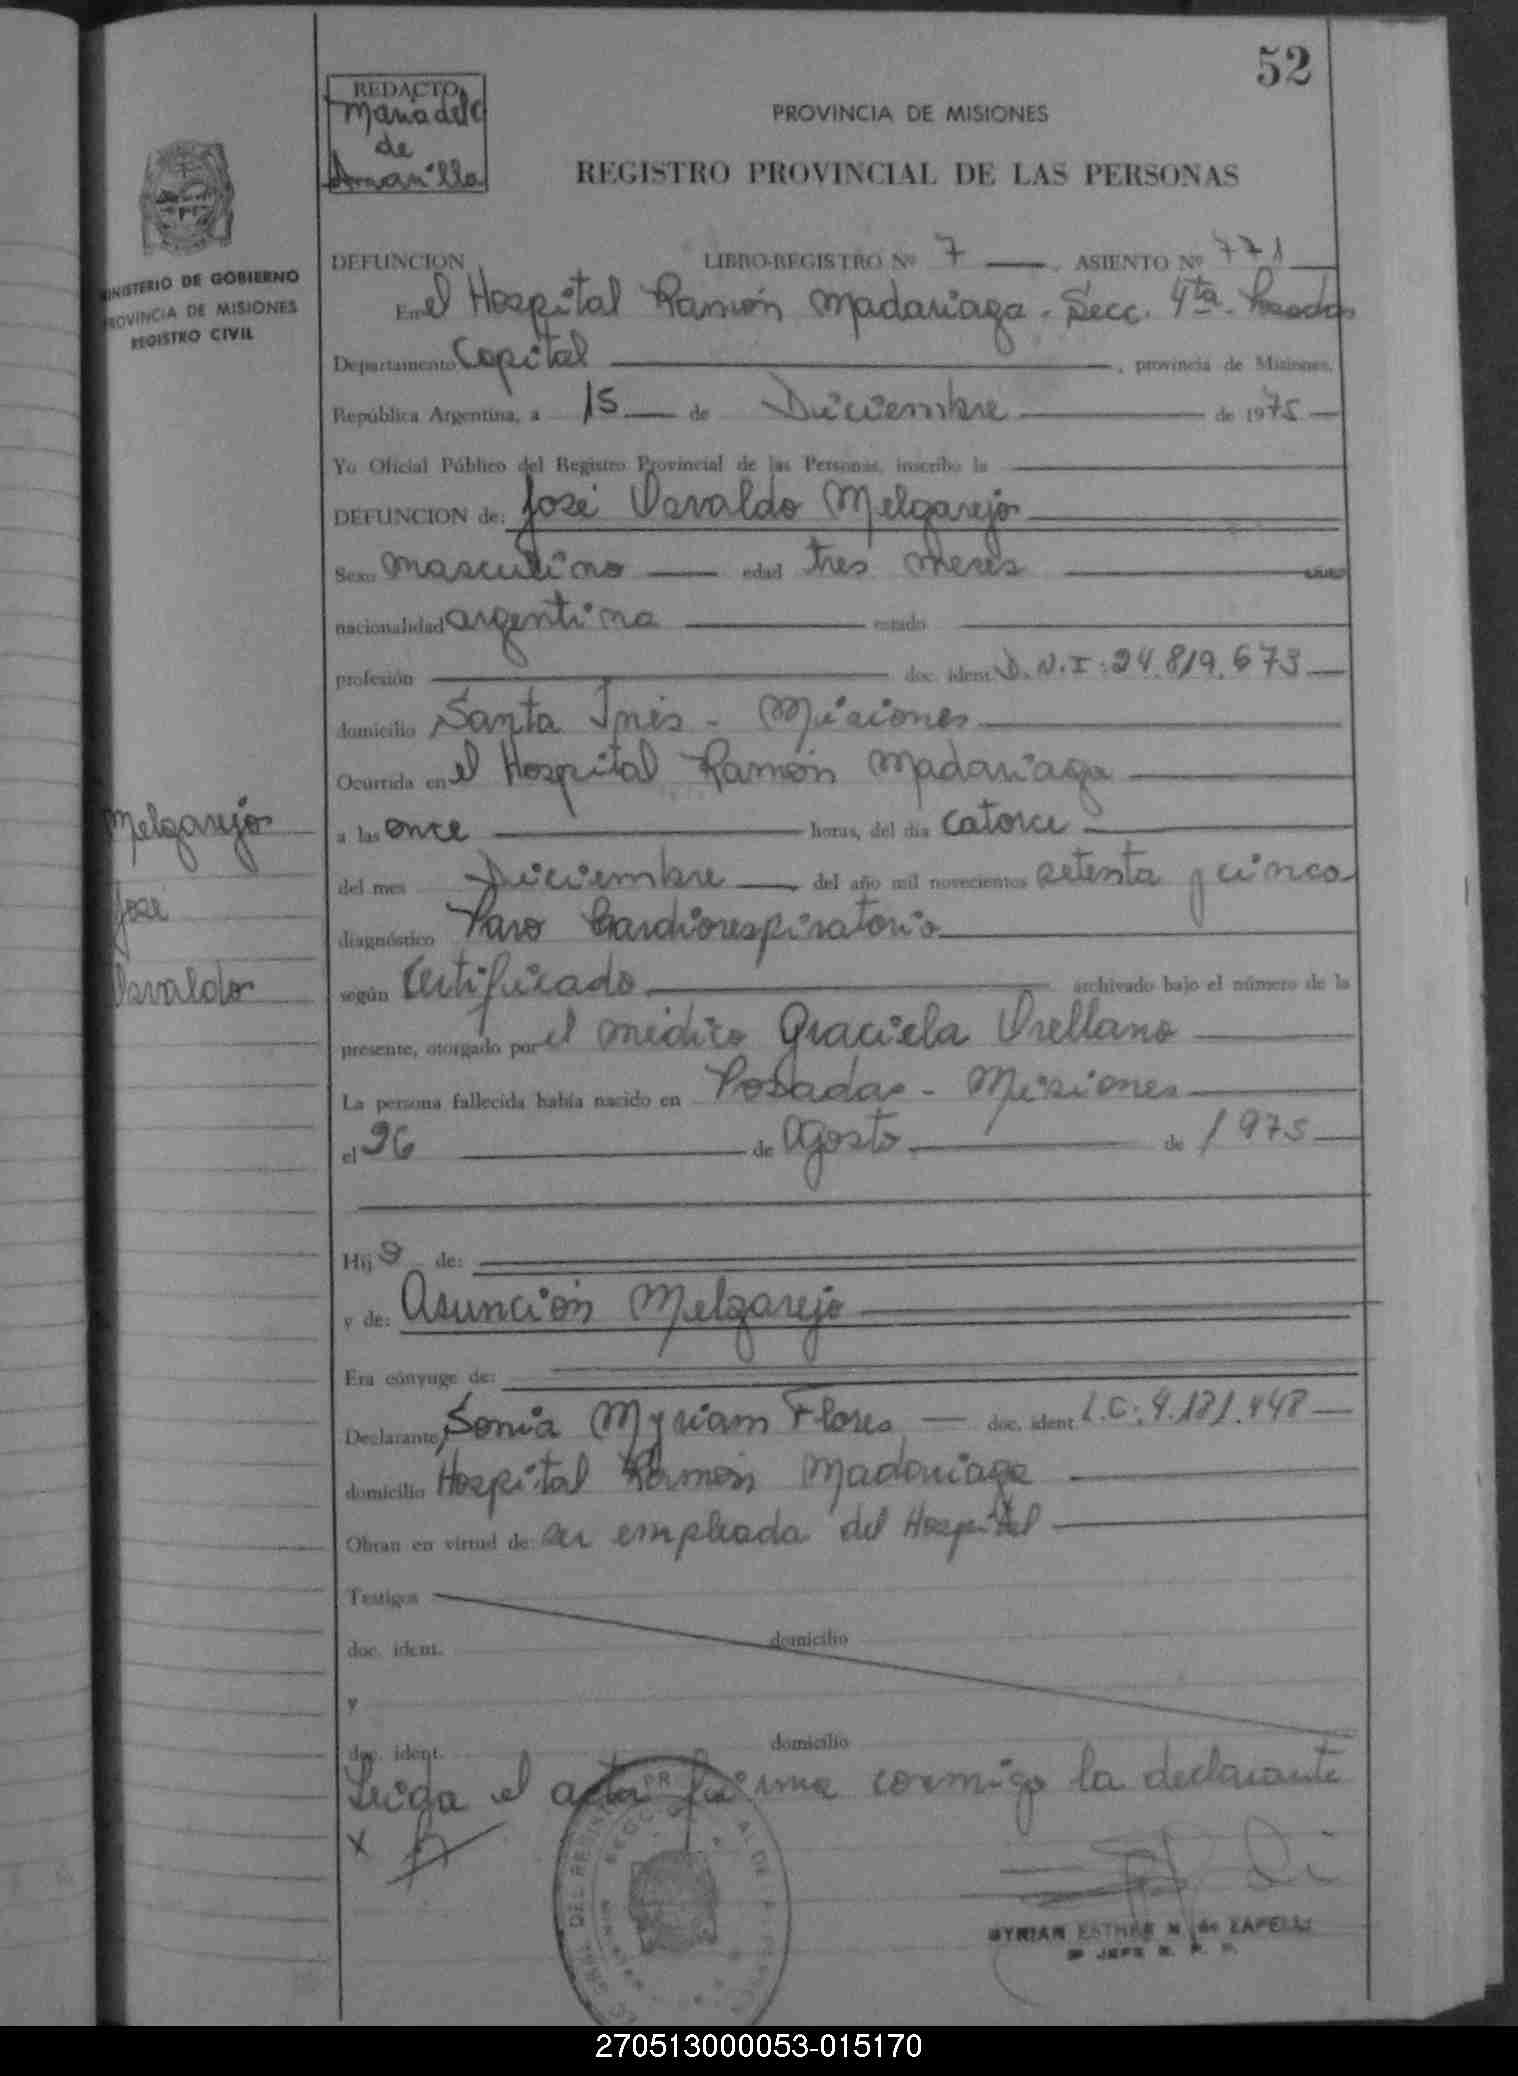 52
REDACTO
Maria del C
de
Amarilla
PROVINCIA DE MISIONES
REGISTRO PROVINCIAL DE LAS PERSONAS
MINISTERIO DE GOBIERNO
PROVINCIA DE MISIONES
REGISTRO CIVIL
DEFUNCION LIBRO-REGISTRO Nº 7 ASIENTO Nº 771
En el Hospital Ramón Madariaga. Secc. 4ta. Posadas
Departamento Capital, provincia de Misiones,
República Argentina, a 15 de Diciembre de 1975
Yo Oficial Público del Registro Provincial de las Personas, inscribo la
DEFUNCION de: José Osvaldo Melgarejo
Sexo masculino edad tres meses
nacionalidad argentina estado
profesión doc. ident. D.N.I: 24.819.673
domicilio Santa Inés - Misiones
Ocurrida en el Hospital Ramón Madariaga
a las once horas, del día catorce
del mes Diciembre del año mil novecientos setenta y cinco
diagnóstico Paro Cardiorespiratorio
según Certificado archivado bajo el número de la
presente, otorgado por el médico Graciela Orellano
La persona fallecida había nacido en Posadas - Misiones
el 26 de Agosto de 1975
Melgarejo
José
Osvaldo
Hijo de:
y de: Asunción Melgarejo
Era cónyuge de:
Declarante Sonia Myriam Flores doc. ident. L.C: 4.181.448
domicilio Hospital Ramón Madariaga
Obran en virtud de: ser empleada del Hospital
Testigos
doc. ident. domicilio
y
doc. ident. domicilio
Leida el acta firma conmigo la declarante
x
MYRIAN ESTHER N. de ZAPELLI
JEFE R. P. P.
270513000053-015170